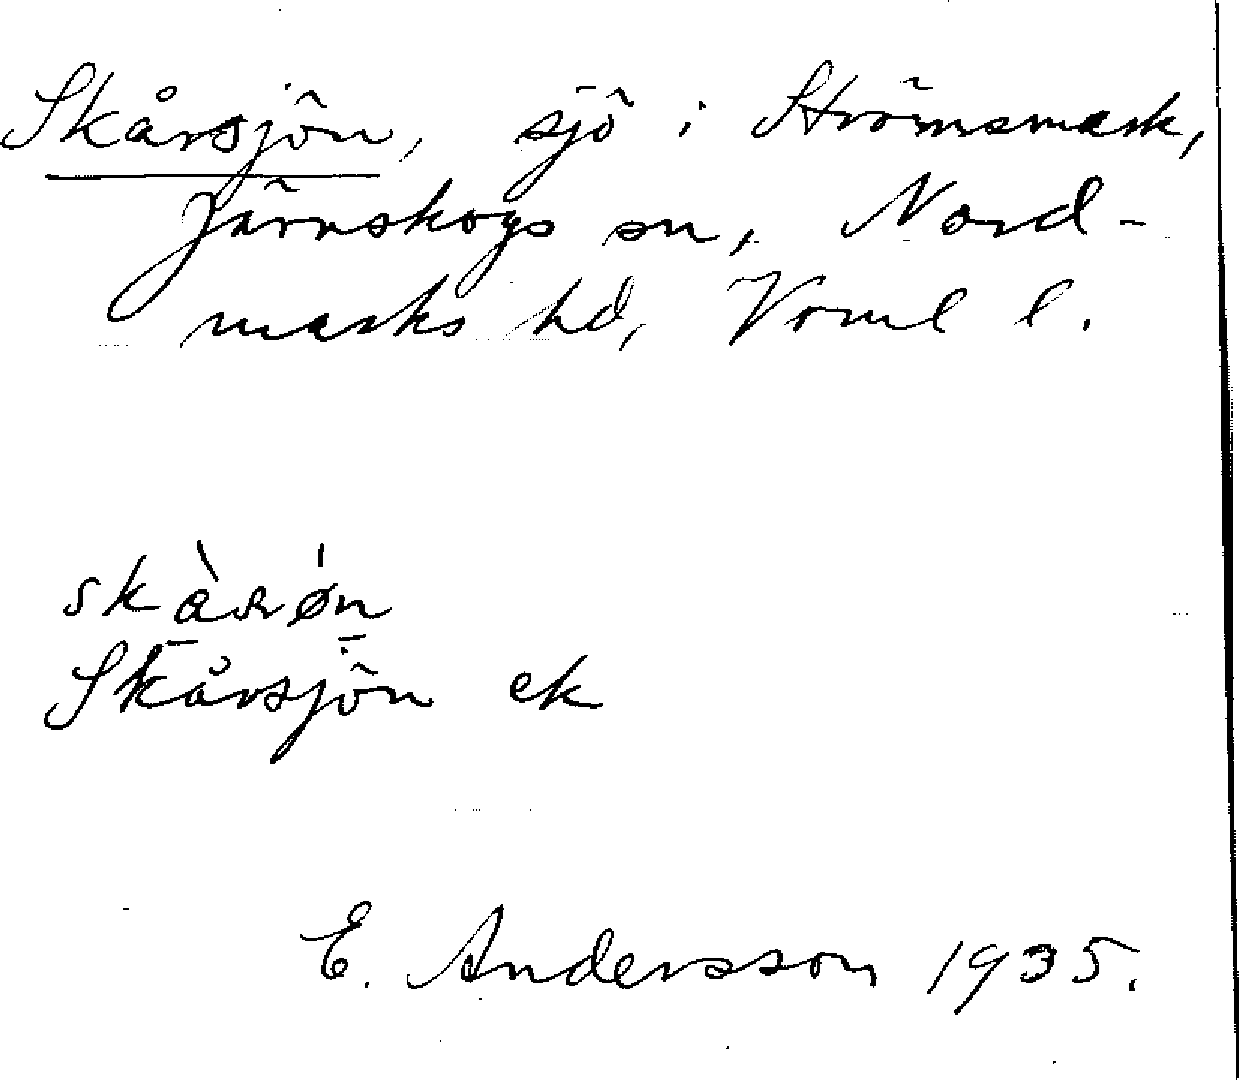 Skårsjön, sjö i Strömsmark,
Järnskogs sn, Nord-
marks hd, Vrml l.
Skårsjön ek
E. Andersson 1935.